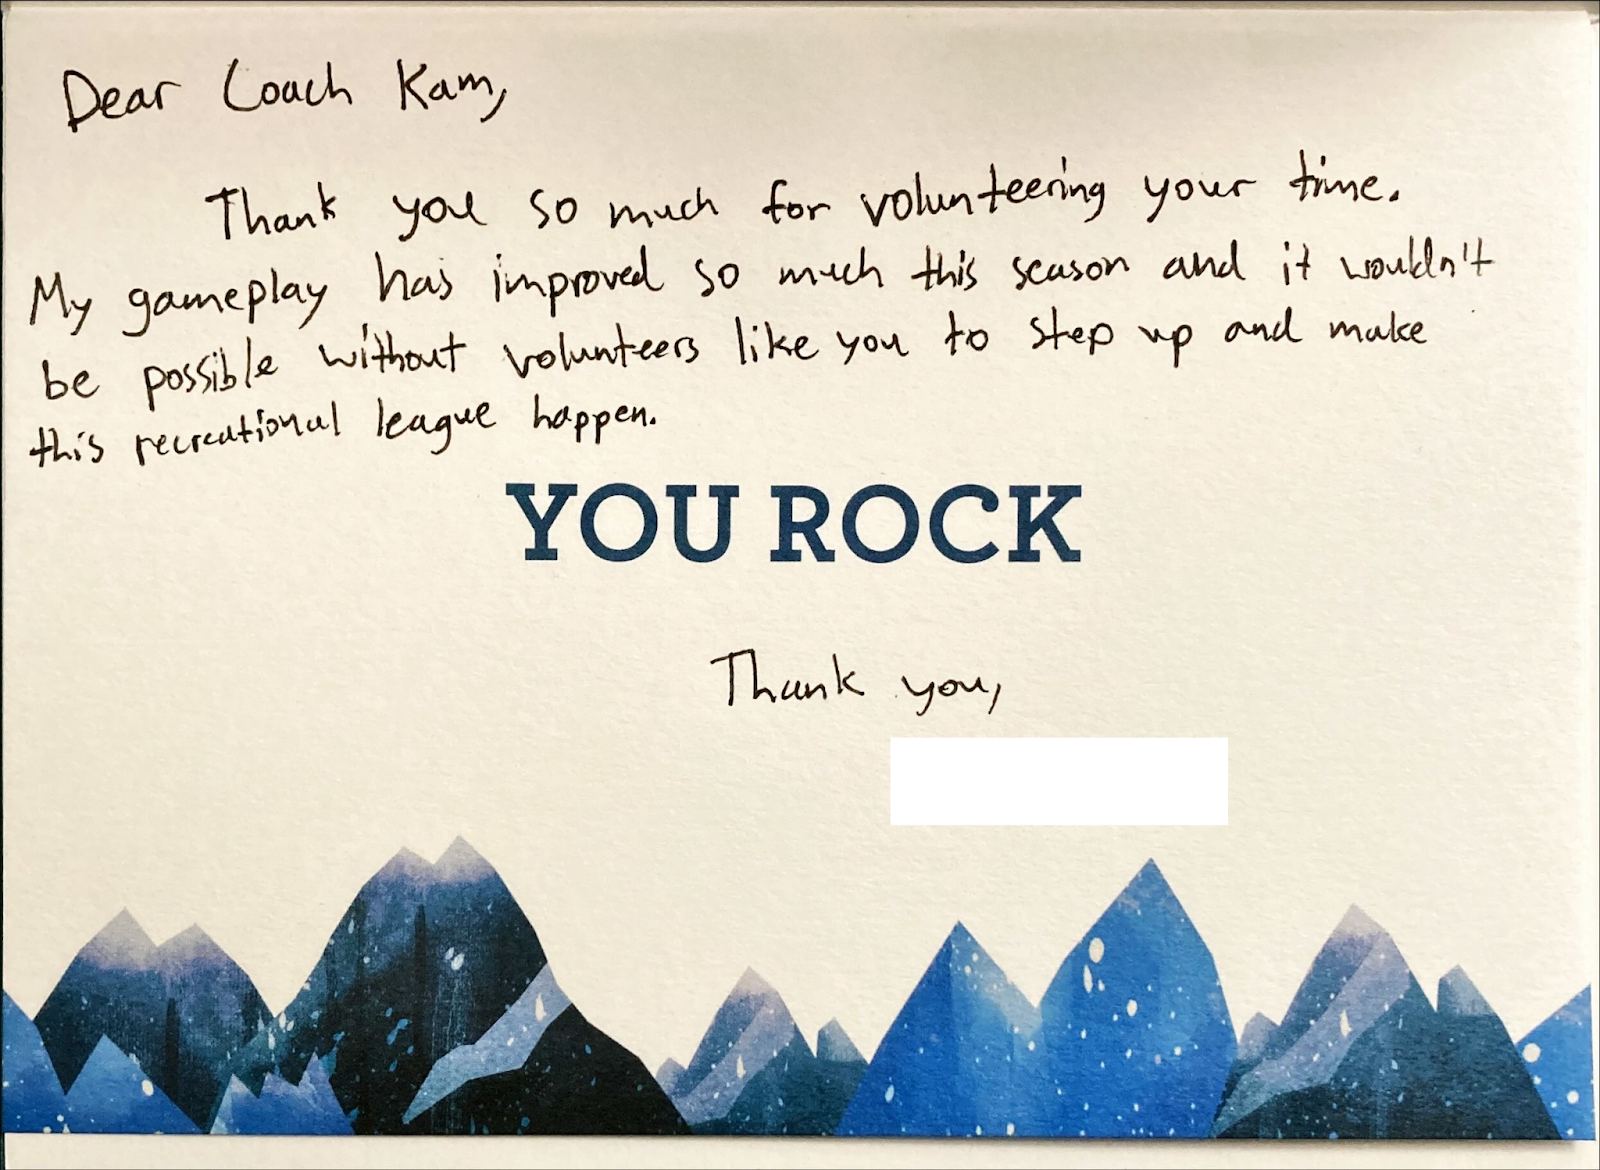 Dear Coach Kam,
Thank you so much for volunteering your time.
My gameplay has improved so much this season and it wouldn't
be possible without volunteers like you to step up and make
this recreational league happen.
YOU ROCK
Thank you,